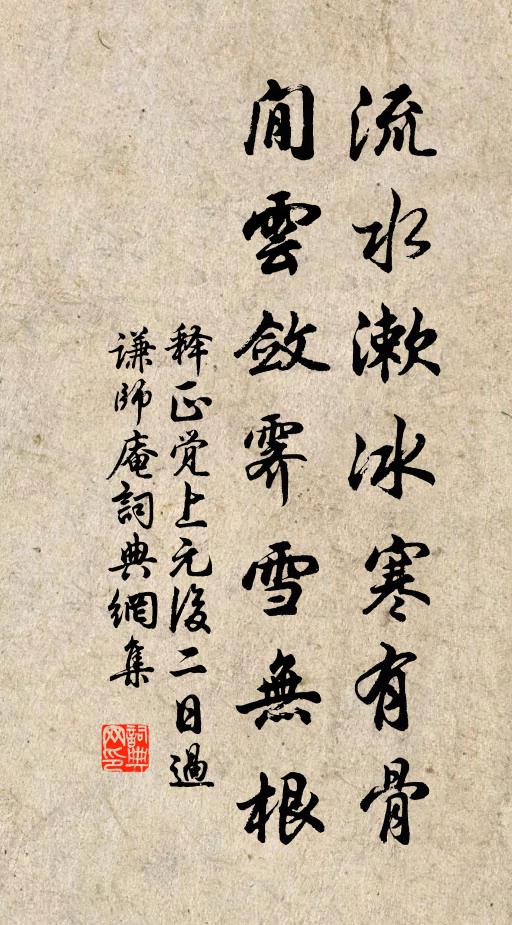 流水漱冰寒有骨
閒雲斂霽雪無根
释正觉上元後二日過
谦師庵詞典網集
詞典网印